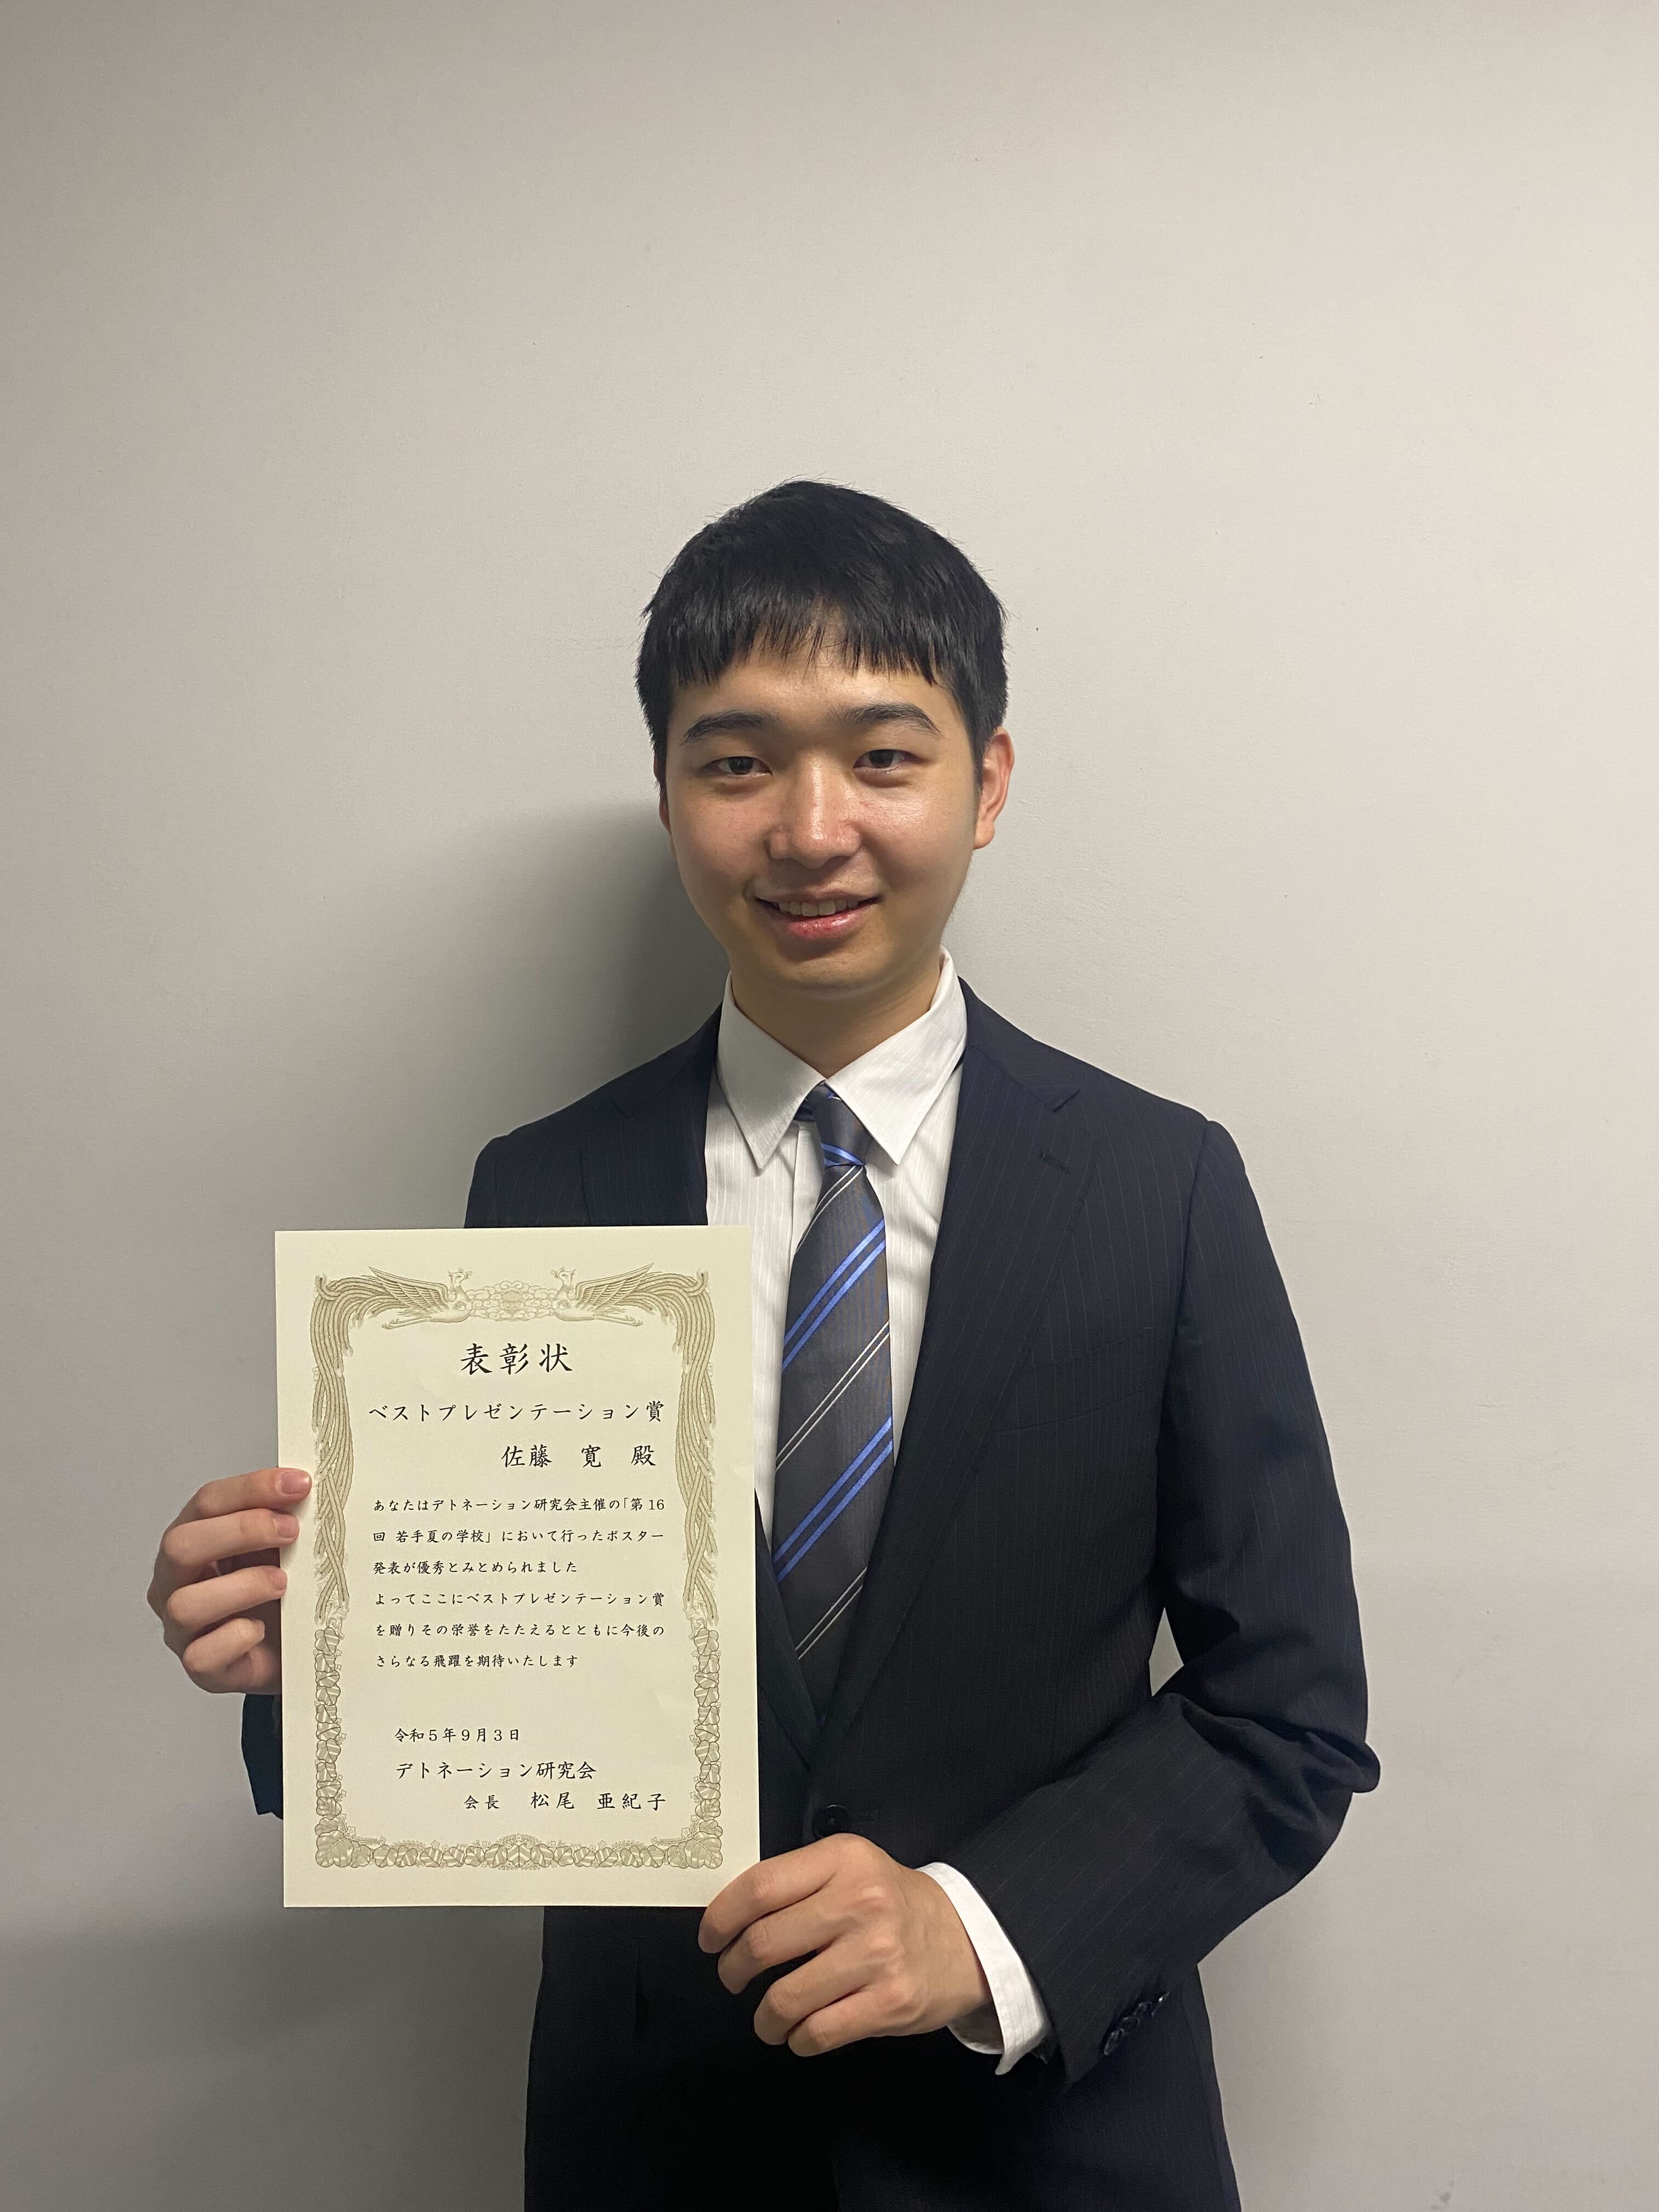 表彰状
ベストプレゼンテーション賞
佐藤 寛 殿
あなたはデトネーション研究会主催の「第16
回 若手夏の学校」において行ったポスター
発表が優秀とみとめられました
よってここにベストプレゼンテーション賞
を贈りその栄誉をたたえるとともに今後の
さらなる飛躍を期待いたします
令和5年9月3日
デトネーション研究会
会長 松尾 亜紀子